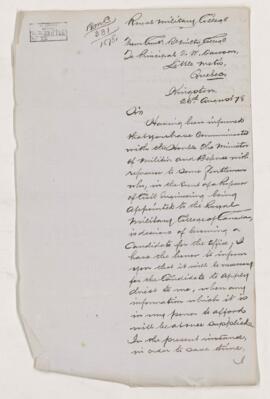 Royal Military College
From Com't R. Military College
To Principal J. W. Dawson,
Little Metis,
Quebec
Kingston
26th August 78
Sir
Having been informed
that you have communicated
with the Honble the Minister
of Militia and Defence with
reference to some Gentleman
who, in the event of a Professor
of Civil Engineering being
appointed to the Royal
Military College of Canada,
is desirous of becoming a
Candidate for the office; I
have the honor to inform
you that it will be necessary
for the Candidate to apply
direct to me, when any
information which it is
in my power to afford
will be at once supplied.
In the present instance,
in order to save time,
I